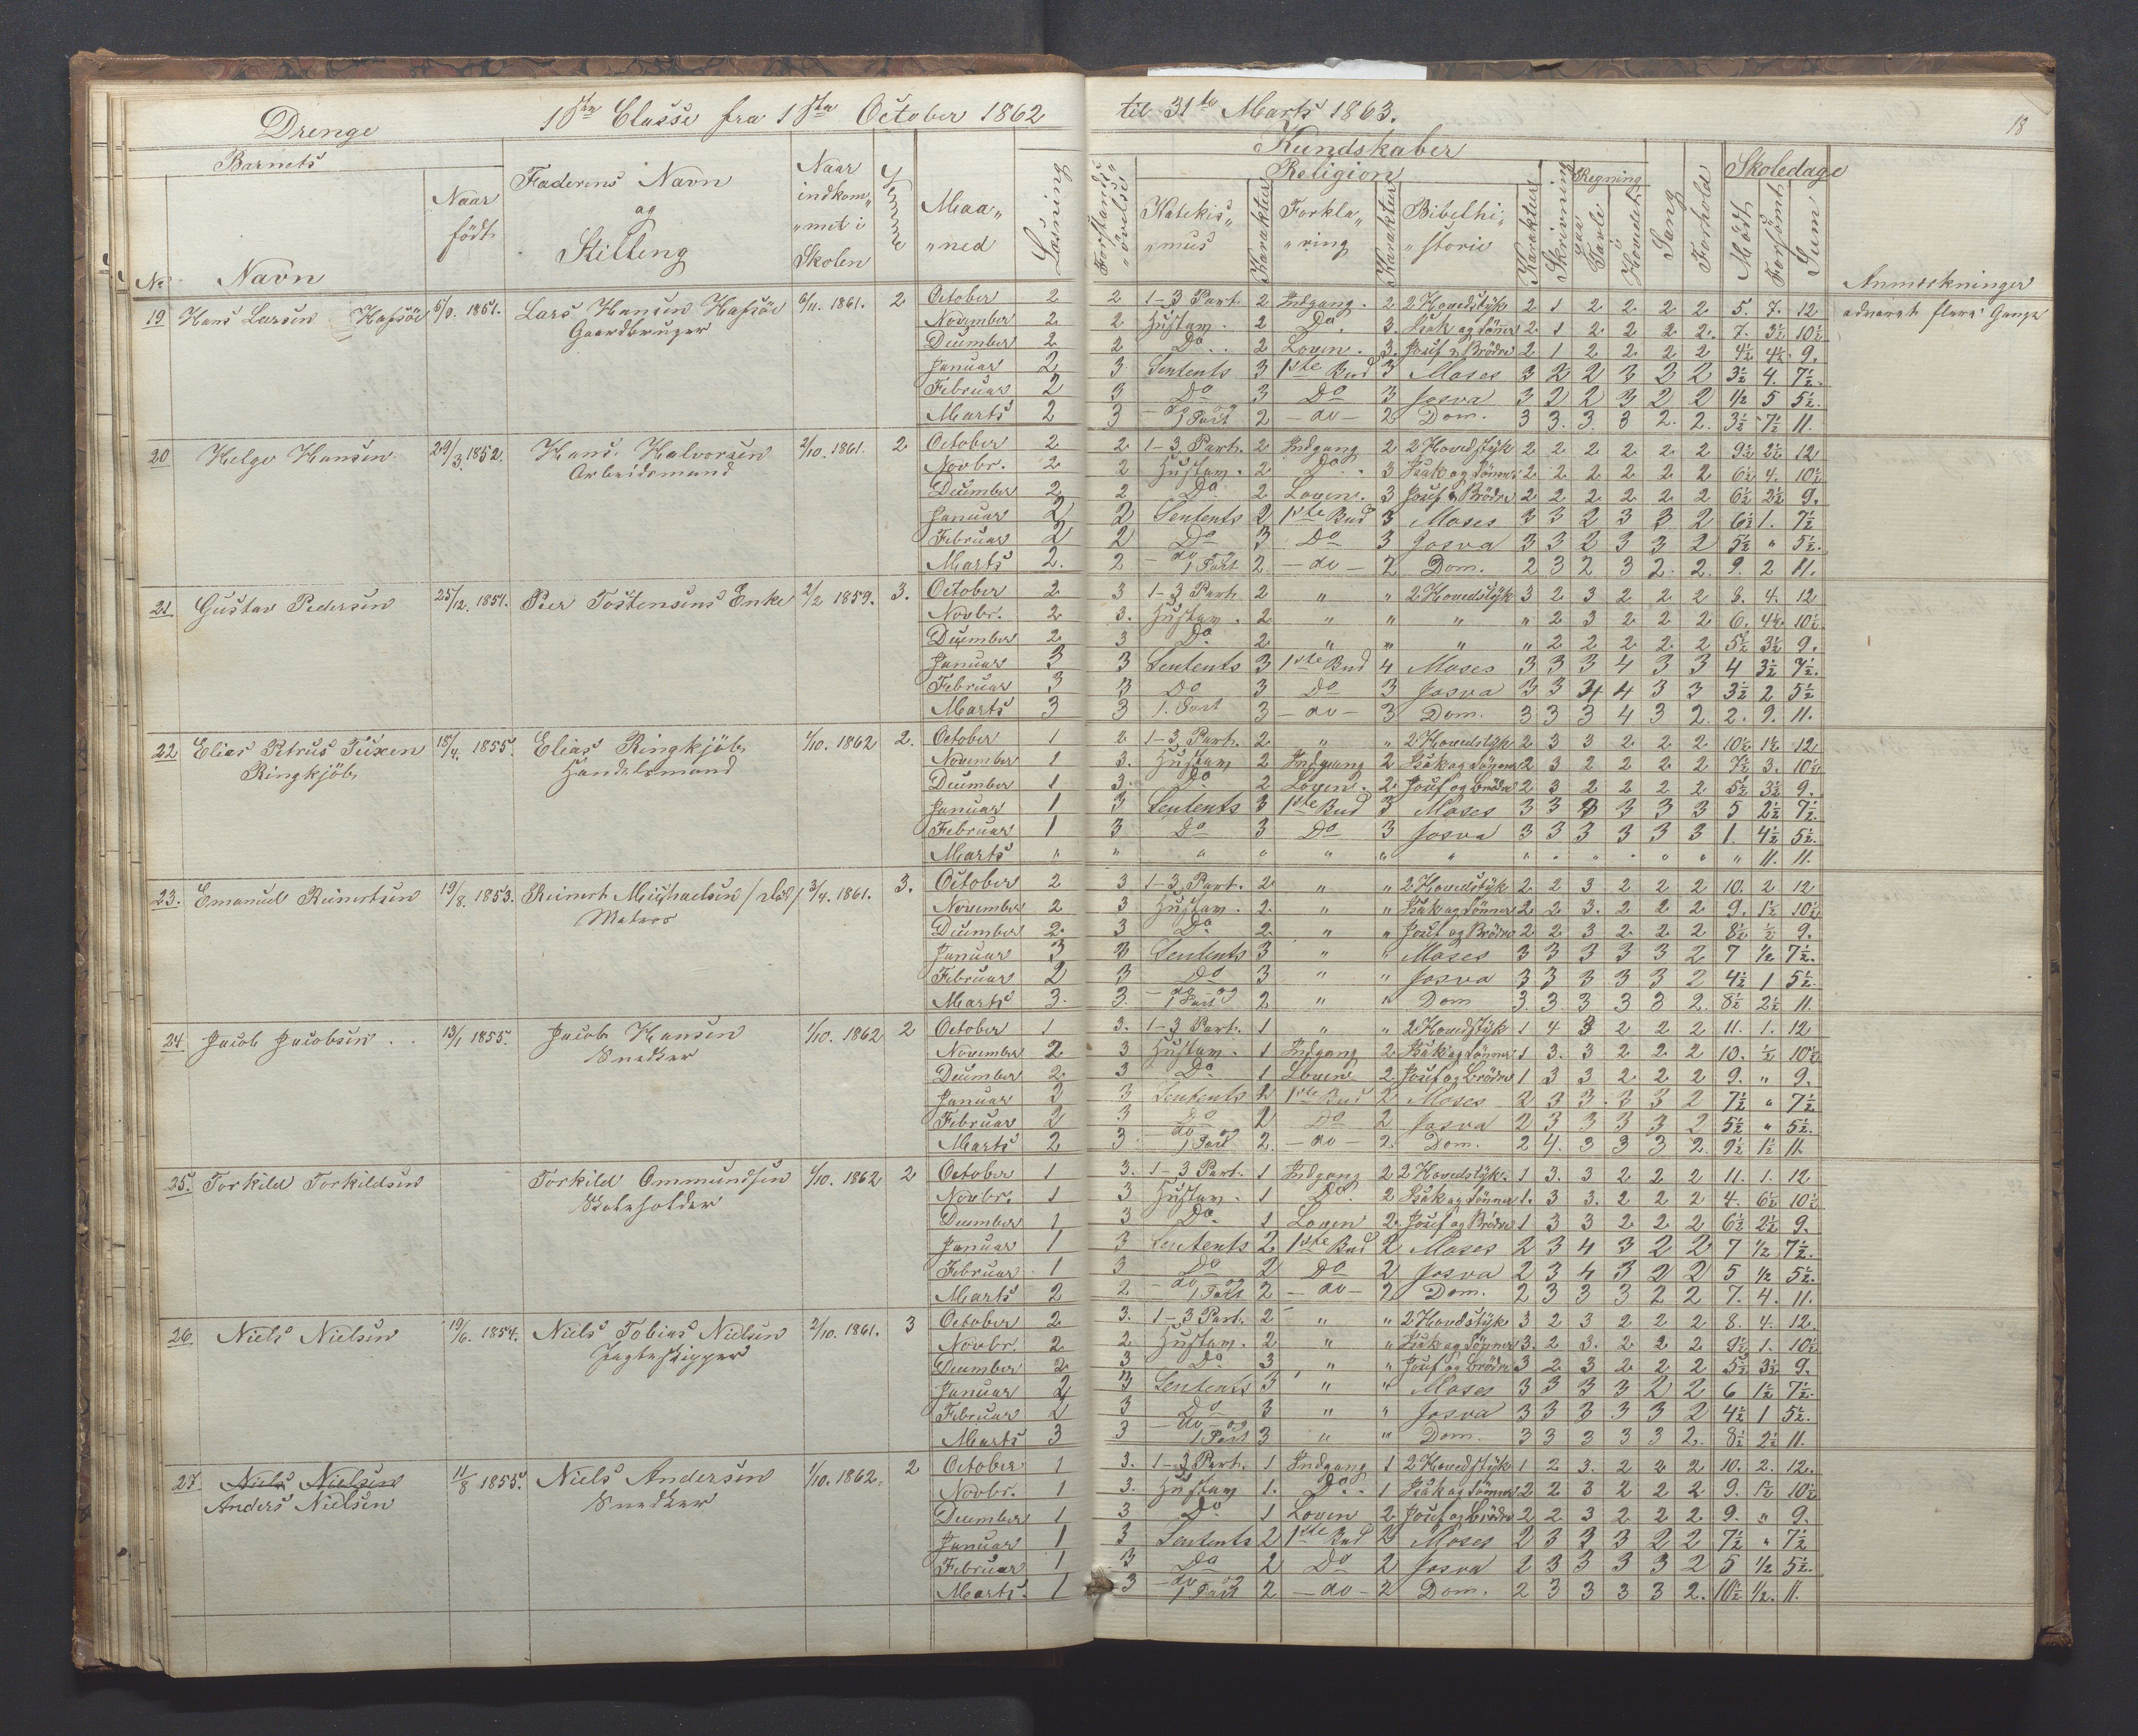 Drenge 1ste Classe fra 1ste October 1862 til 31te Marts 1863. 18
Barnets Kundskaber
Religion Regning Skoledage
No Navn Naar födt Faderens Navn og Stilling Naar indkom„ „met i Skolen Evne Maa„ „ned Læsning Forstands„ „övelse Katekis„ „mus Karakter Forkla„ „ring Karakter Bibelhi„ „storie Karakter Skrivning paa Tavle Hovedet Sang Forhold Mödt Forsömt Sum Anmærkninger
19 Hans Larsen Hafsöe 5/9. 1851. Lars Hansen Hafsöe 6/11. 1861. 2 October 2 2 1-3 Part. 2 Indgang. 2 2 Hovedstyk 2 1 2 2 2 2 5. 7. 12 advaret flere Gange
Gaardbruger November 2 2 Hustav. 2 Do. 3. Isak og Sönner 2 1 2 2 2 2. 7. 3½ 10½
December 2 2 Do. 2 Loven. 3. Josef & Brödre 2 1 2 2 2 2 4½ 4½ 9.
Januar 2 3 Sentents 3 1ste Bud 3 Moses 3 2 2 3 2 2 3½ 4. 7½.
Februar 2 3 Do 3 Do 3 Josva 3 2 2 3 2 2 ½ 5 5½.
Marts 2 3 - do og 1 Part 2 - do - 2 Dom. 3 3. 3. 3 2. 2. 3½ 7½ 11.
20 Helge Hansen 29/3. 1852. Hans Halvorsen 2/10. 1861. 2 October 2 2. 1-3 Part. 2 Indgang 2 2 Hovedstyk 2 2 2 2 2 2 9½ 2½ 12
Arbeidsmand Novbr. 2 2 Hustav. 2 Do. 3 Isak og Sönner 2 2 2 2 2 2 6½ 4. 10½
December 2 2 Do. 2 Loven. 3 Josef & Brödre 2 2 2 2 2 2 6½ 2½ 9.
Januar 2 2 Sentents 2 1ste Bud 3 Moses 3 3 2 3 3 2 6½ 1. 7½
Februar 2 2 Do 3 Do 3 Josva 3 3 2 3 3 2 5½ " 5½.
Marts 2. 2 - do og 1 Part 2 - do - 2 Dom. 2 3 2 3 2. 2. 9. 2 11.
21 Gustav Pedersen 25/12. 1851. Peer Tostensens Enke 2/2 1859. 3. October 2 3 1-3 Part 2 " " 2 Hovedstyk 3 2 3 2 2 2 8. 4. 12
Novbr. 2 3. Hustav. 2 " " " " 2 3 2 2 2 6. 4½ 10½
December 2 3 Do. 2 " " " " 2 2 2 2 2 5½ 3½ 9.
Januar 3 3 Sentents 3 1ste Bud 4 Moses 3 3 3 4 3 3 4 3½ 7½.
Februar 3 3 Do 3 Do 3 Josva 3 3 4 4 3 3 3½ 2 5½
Marts 3 3 1. Part 3 - do - 3 Dom. 3 3 3 4 3 2. 2. 9. 11.
22 Elias Petrus Tuxen 18/4. 1855. Elias Ringkjöb 1/10. 1862 2. October 1 2 1-3 Part. 2 " " 2 Hovedstyk 2 3 3 2 2 2 10½ 1½ 12
Ringkjöb Handelsmand November 1 3. Hustav 2 Indgang 2 Isak og Sönner 2 3 2 2 2 2 7½ 3. 10½
December 1 3. Do 2 Loven. 2 Josef og Brödre 2 3 2 2 2 2 5½ 3½ 9.
Januar 1 3 Sentents 3 1ste Bud 3 Moses 3 3 3 3 3 3 5 2½ 7½
Februar 1 3 Do 3 Do 3 Josva 3 3 3 3 3 3 1. 4½ 5½.
Marts " " " " " " " " " " " " " " 11. 11.
23. Emanuel Reinertsen 19/8. 1853. Reinert Michaelsen /död/ 3/4. 1861. 3. October 2 3 1-3 Part. 2 " " 2 Hovedstyk 2 2 3 2 2 2 10. 2 12
Matros November 2 3 Hustav. 2. " " Isak og Sönner 2 2 3. 2 2 2 9. 1½ 10½
December 2. 3 Do 2. " " Josef og Brödre 2 2 3 2 2 2 8½ ½ 9.
Januar 3 3 Sentents 3 " " Moses 3 3 3 3 3 2 7 ½ 7½.
Februar 2 3 Do 3 " " Josva 3 3 3 3 3 2 4½ 1 5½.
Marts 3. 3. - do og 1 Part 2 " " Dom 3. 3. 3 3 3 2. 8½ 2½ 11.
24 Jacob Jacobsen 13/1 1855. Jacob Hansen 1/10. 1862 2 October 1 3. 1-3 Part. 1 " " 2 Hovedstyk 1 4 3 2 2 2 11. 1. 12
Snedker November 2 3 Hustav. 1 Indgang 2 Isak og Sönner 1 3. 3 2 2 2 10. ½ 10½
December 2 3 Do 1 Loven 2. Josef og Brödre 1 3 3 2 2 2 9. " 9.
Januar 2 3 Sentents 2 1ste Bud 2 Moses 2 3 3 3 3 2 7½ " 7½
Februar 2 3 Do 2 Do 2 Josva 2 3 3 3 3 2 5½ " 5½.
Marts 2 3 - do og 1 Part 2. - do - 2. Dom. 2 4. 3 3 3 2. 9½ 1½ 11.
25. Torkild Torkildsen Torkild Ommundsen 1/10. 1862 2 October 1 3. 1-3 Part. 1 Indgang 2 2 Hovedstyk. 1 3. 3 2 2 2 11. 1. 12
Skoleholder Novbr. 1 3 Hustav. 1 Do. 2 Isak og Sönner 1. 3 3. 2 2 2 4. 6½ 10½
December 1 3 Do. 1 Loven 2. Josef og Brödre 1 3 3 2 2 2 6½ 2½ 9.
Januar 1 3 Sentents 2 1ste Bud 2 Moses 2 3 4 3 2 2 7 ½ 7½.
Februar 1 3 Do 2 Do 2 Josva 2 3 4 3 2 2 5 ½ 5½.
Marts 2 2 - do og 1 Part 2 - do - 2 Dom. 2 3 3 3 2 2 7. 4. 11.
26 Niels Nielsen 19/6. 1854. Niels Tobias Nielsen 2/10. 1861. 3 October 2 3. 1-3 Part. 2 " " 2 Hovdstyk 3 2 3 2 2 2 8. 4. 12.
Jagteskipper Novbr. 2 2 Hustav. 2 " " Isak og Sönner 3. 2 3. 2 2 2 9½ 1. 10½
December 2 3 Do. 3 " " Josef og Brödre 3 2 3 2 2 2 5½ 3½ 9.
Januar 2 3 Sentents 3 " " Moses 3 3 3 3 2 2 6 1½ 7½.
Februar 2 3 Do 3 " " Josva 3 3 3 3 3 2 4½ 1 5½.
Marts 3 3 - do - og 1 Part 3 " " Dom. 3 3 3 3 3 2. 8½ 2½ 11.
27. Niels Nielsen 11/8 1855. Niels Andersen 1/10. 1862. 2 October 1 3. 1-3 Part. 1 Indgang 1 2 Hovedstyk 1 2 3. 2 2 2 10. 2. 12.
Anders Nielsen Snedker Novbr. 1 3. Hustav 1. Do. 1 Isak og Sönner 2 2 3 2 2 2 9. 1½ 10½
December 1 3 Do 1 Loven 2 Josef og Brödre 2 2 3 2 2 2 9. " 9.
Januar 1 3 Sentents 2 1ste Bud 2 Moses 2 3 3 3 2 2 7½ " 7½
Februar 1 3 Do 2 Do 2 Josva 2 3 3 3 3 2 5 ½ 5½.
Marts. 1 3 - do og 1 Part 2 - do - 2 Dom. 2 3 3 3 3 2. 10½ ½. 11.